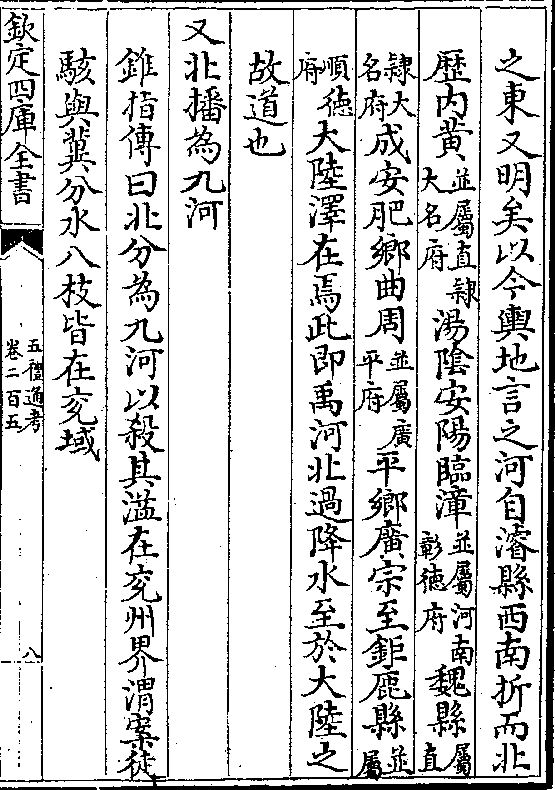 之東又明矣以今輿地言之河自濬縣西南折而北
歴内黄並屬直隸大名府湯陰安陽臨漳並屬河南彰徳府魏縣屬直
隸大名府成安肥鄉曲周並屬廣平府平鄉廣宗至鉅鹿縣並屬
順徳府大陸澤在焉此即禹河北過降水至於大陸之
故道也
又北播為九河
錐指傳曰北分為九河以殺其溢在兖州界渭案徒
駭與冀分水八枝皆在兖域
欽定四庫全書
五禮通考
卷二百五
八